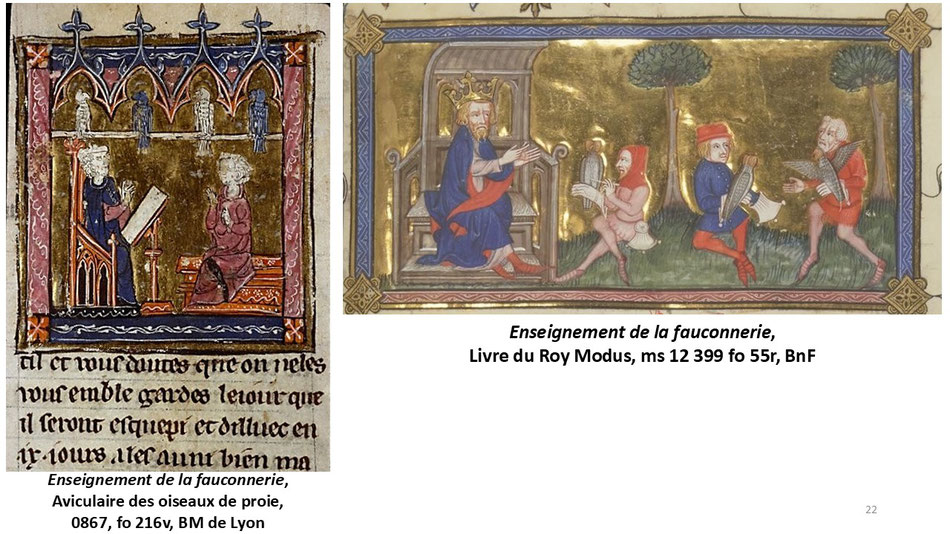 til et vous doutes que on ne les
vous emble gardes le iour que
il seront esquepi et dilluec en
ix. iours
bien ma
Enseignement de la fauconnerie,
Aviculaire des oiseaux de proie,
0867, fo 216v, BM de Lyon
Enseignement de la fauconnerie,
Livre du Roy Modus, ms 12 399 fo 55r, BnF
22